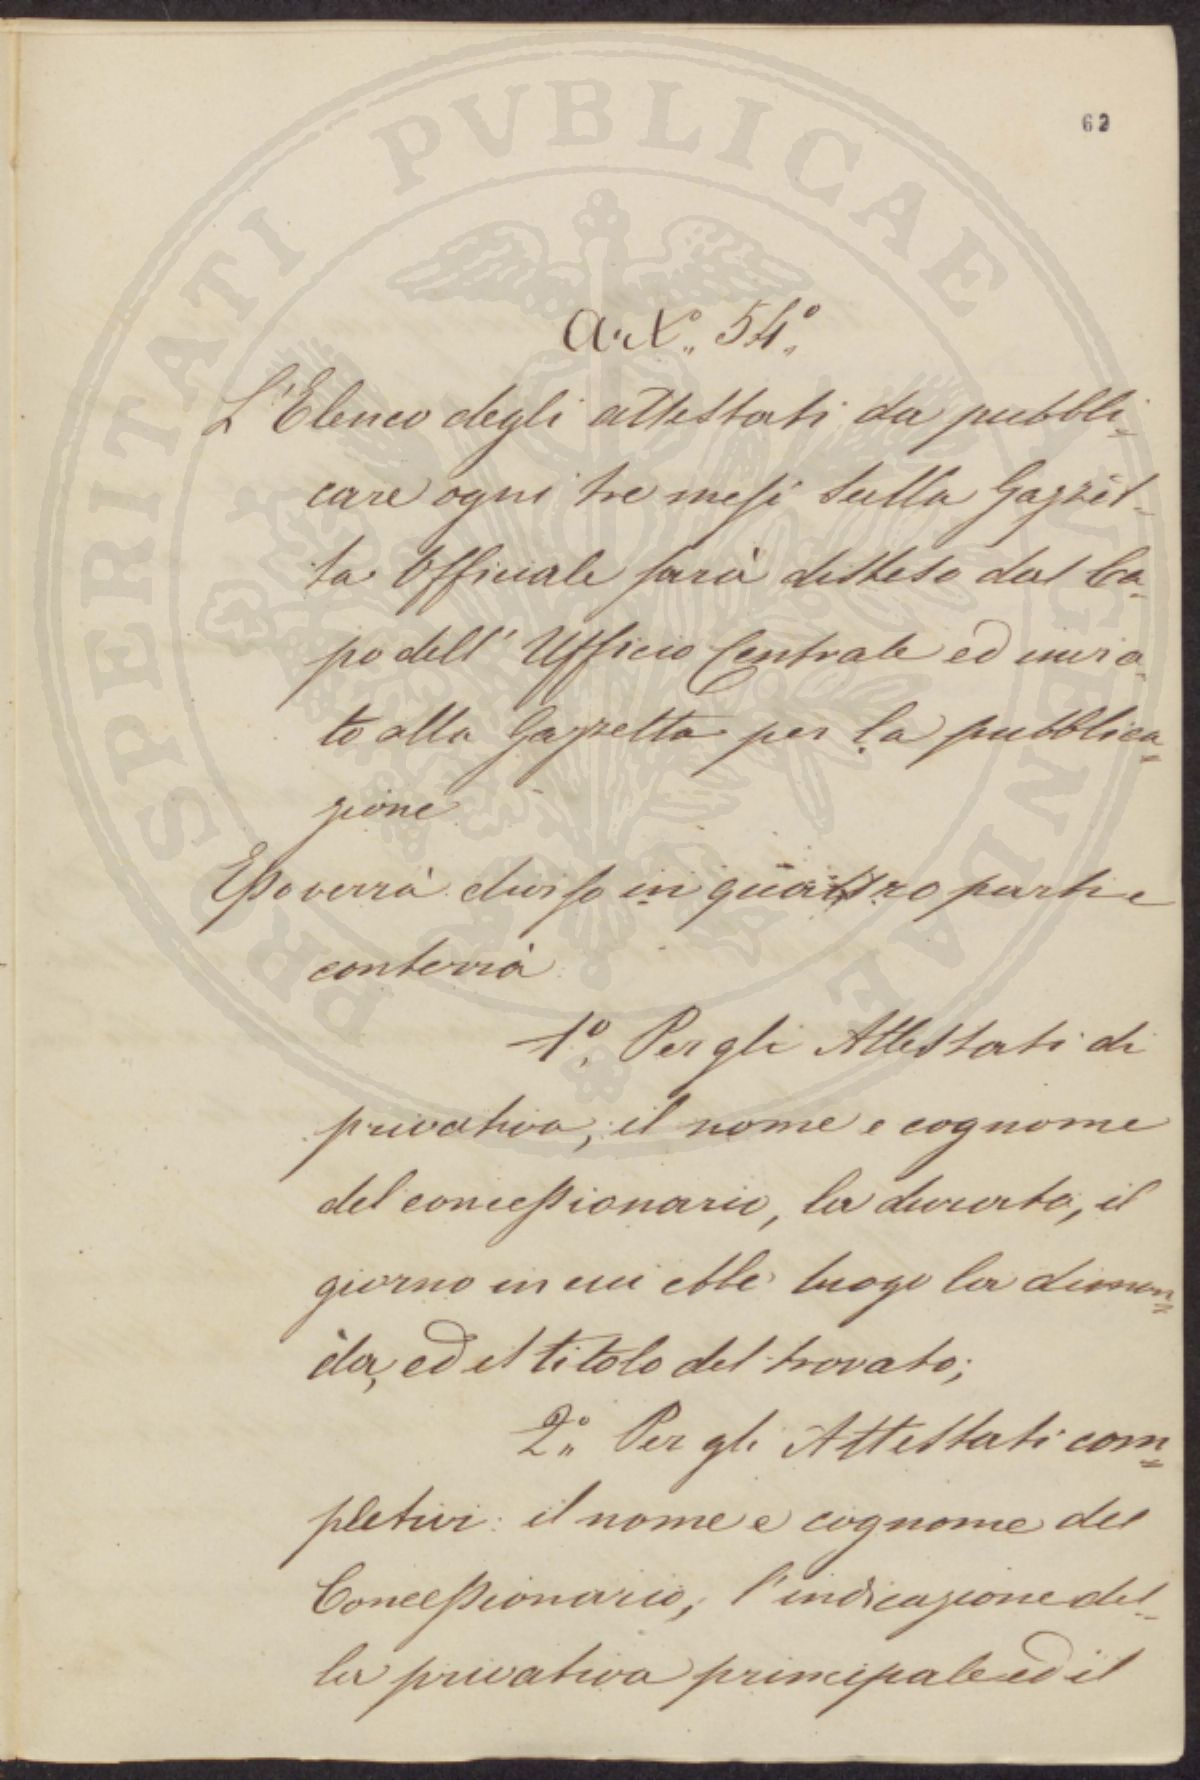 PROSPERITATI PVBLICAE AVGENDAE
62
Art.° 54.°
L'Elenco degli attestati da pubbli=
care ogni tre mesi sulla Gazzet=
ta Officiale sarà disteso dal Ca=
po dell' Ufficio Centrale ed invia=
to alla Gazzetta per la pubblica=
zione
Esso verrà diviso in quattro parti e
conterrà:
1.° Per gli Attestati di
privativa, il nome e cognome
del concessionario, la durata, il
giorno in cui ebbe luogo la diman=
da, ed il titolo del trovato;
2.° Per gli Attestati com=
pletivi: il nome e cognome del
Concessionario, l'indicazione del=
la privativa principale ed il